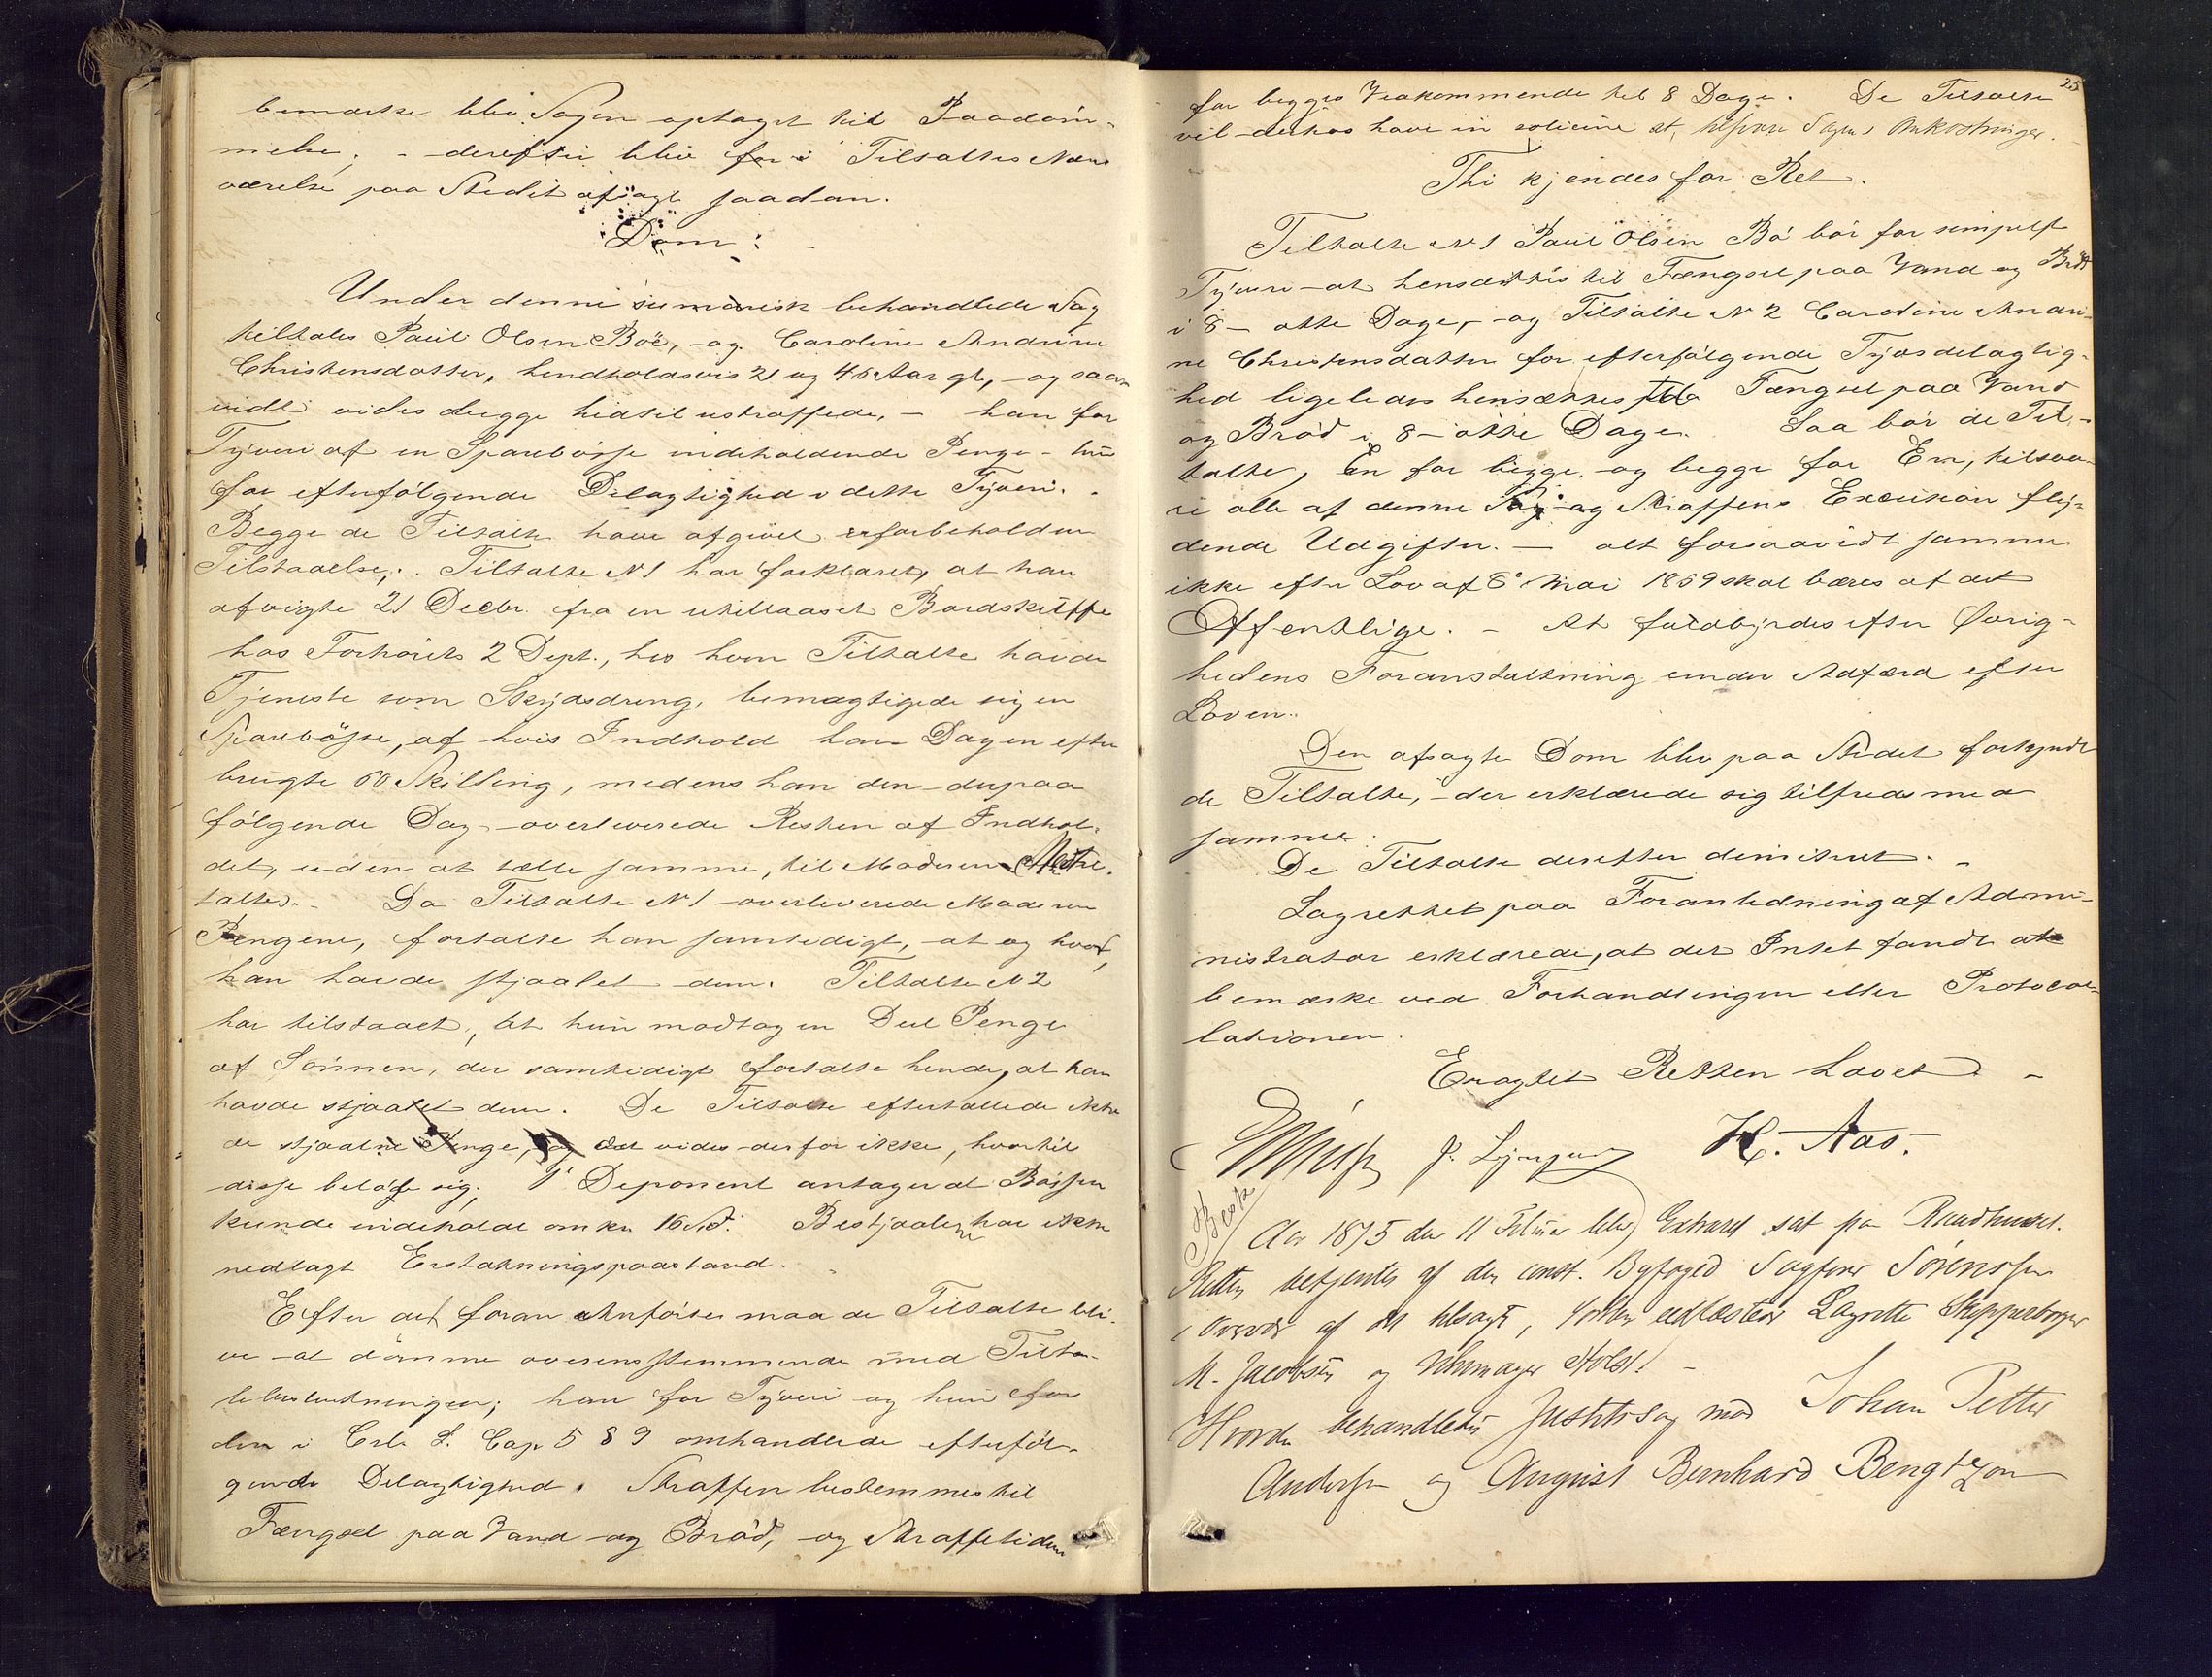 bemærke blev Sagen optaget til Paadöm-
melse; - derefter blev for i Tiltaltes Nær
værelse paa Stedet afsagt saadan.
Dom:
Under denne sumarisk behandlede Sag
tiltales Paul Olsen Böe, og Caroline Andrine
Christensdatter, hendholdsvis 21 og 45 Aar gl, - og saa
vidt vides begge hidtil ustraffede, - han for
Tyveri af en Sparebösse indeholdende Penge - hun
for efterfölgende Delagtighed i dette Tyveri.
Begge de Tiltalte have afgivet uforbeholden
Tilstaaelse; Tiltalte N 1 har forklaret, at han
afvigte 21 Decbr. fra en utillaaset Bordskuffe
hos Forhörets 2 Dept., hos hvem Tiltalte havde
Tjeneste som Skydsdreng, bemægtigede sig en
Sparebösse, af hvis Indhold han Dagen efter
brugte 60 Skilling, medens han den derpaa
fölgende Dag overleverede Resten af Indhol-
det, uden at tælle samme, til Moderen Medtil-
talte. Da Tiltalte N 1 overleverede Moderen
Pengene, fortalte han samtidigt, at og hvor
han havde stjaalet dem. Tiltalte N 2
har tilstaaet, at hun modtog en Deel Penge
af Sönnen, der samtidigt fortalte hende, at han
havde stjaalet dem. De Tiltalte eftertallede ikke
de stjaalne Penge, og det vides derfor ikke, hvortil
disse belöbe sig; 1' Deponent antager at Bössen
kunde indeholde omkr 16 Sd. Bestjaalne har ikke
nedlagt Erstatningspaastand.
Efter det foran Anförte maa de Tiltalte bli-
ve at dömme overensstemmende med Tilta-
lebeslutningen; han for Tyveri og hun for
den i Crl. L. Cap 5 § 9 omhandlede efterföl-
gende Delagtighed. Straffen bestemmes til
Fængsel paa Vand og Bröd, og Straffetiden
25
for begges Vedkommende til 8 Dage. De Tiltalte
vil derhos have in solidum at tilsvare Sagens Omkostninger.
Thi kjendes for Ret.
Tiltalte N 1 Paul Olsen Bö bör for simpelt
Tyveri at hensættes til Fængsel paa Vand og Bröd
i 8 - otte Dage, - og Tiltalte N 2 Caroline Andri-
ne Christensdatter for efterfölgende Tyvsdelagtig-
hed ligeledes hensættes til Fængsel paa Vand
og Bröd i 8 - otte Dage. Saa bör de Til-
talte, En for begge og begge for En, tilsva-
re alle af denne Sag og Straffens Execution fly-
dende Udgifter. - alt forsaavidt samme
ikke efter Lov af 6' Mai 1869 skal bæres af det
Offentlige. - At fuldbyrdes efter Øvrig-
hedens Foranstaltning under Adfærd efter
Loven.
Den afsagte Dom blev paa Stedet forkyndt
de Tiltalte, - der erklærede sig tilfreds med
samme.
De Tiltalte derefter dimitteret. -
Lagrettet paa Foranledning af Admi-
nistrator erklærede, at det Intet fandt at
bemærke ved Forhandlingen eller Protocol-
lationen.
Eragtet Retten hævet -
J. Lyng H. Aas.
Aar 1875 den 11 Februar blev Extraret sat paa Raadhuset.
Retten betjentes af den const. Byfoged Sagförer Sörenssen
i Overvær af det tilsagte, forhen edfæstede Lagrette Skipperborger
M. Jacobsen og Uhrmager Holst! -
Hvorda behandledes Justitssag mod Johan Petter
Andersen og August Bernhard Bengtzon